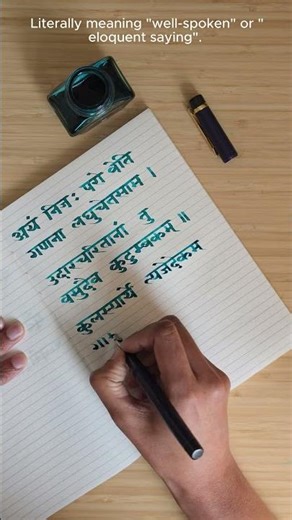 Literally meaning "well-spoken" or "
eloquent saying".
अयं निजः परो वेति
गणना लघुचेतसाम ।
उदारचरितानां तु
वसुदेव कुटुम्बकम् ॥
कुलस्यार्थे त्यजेदेकम